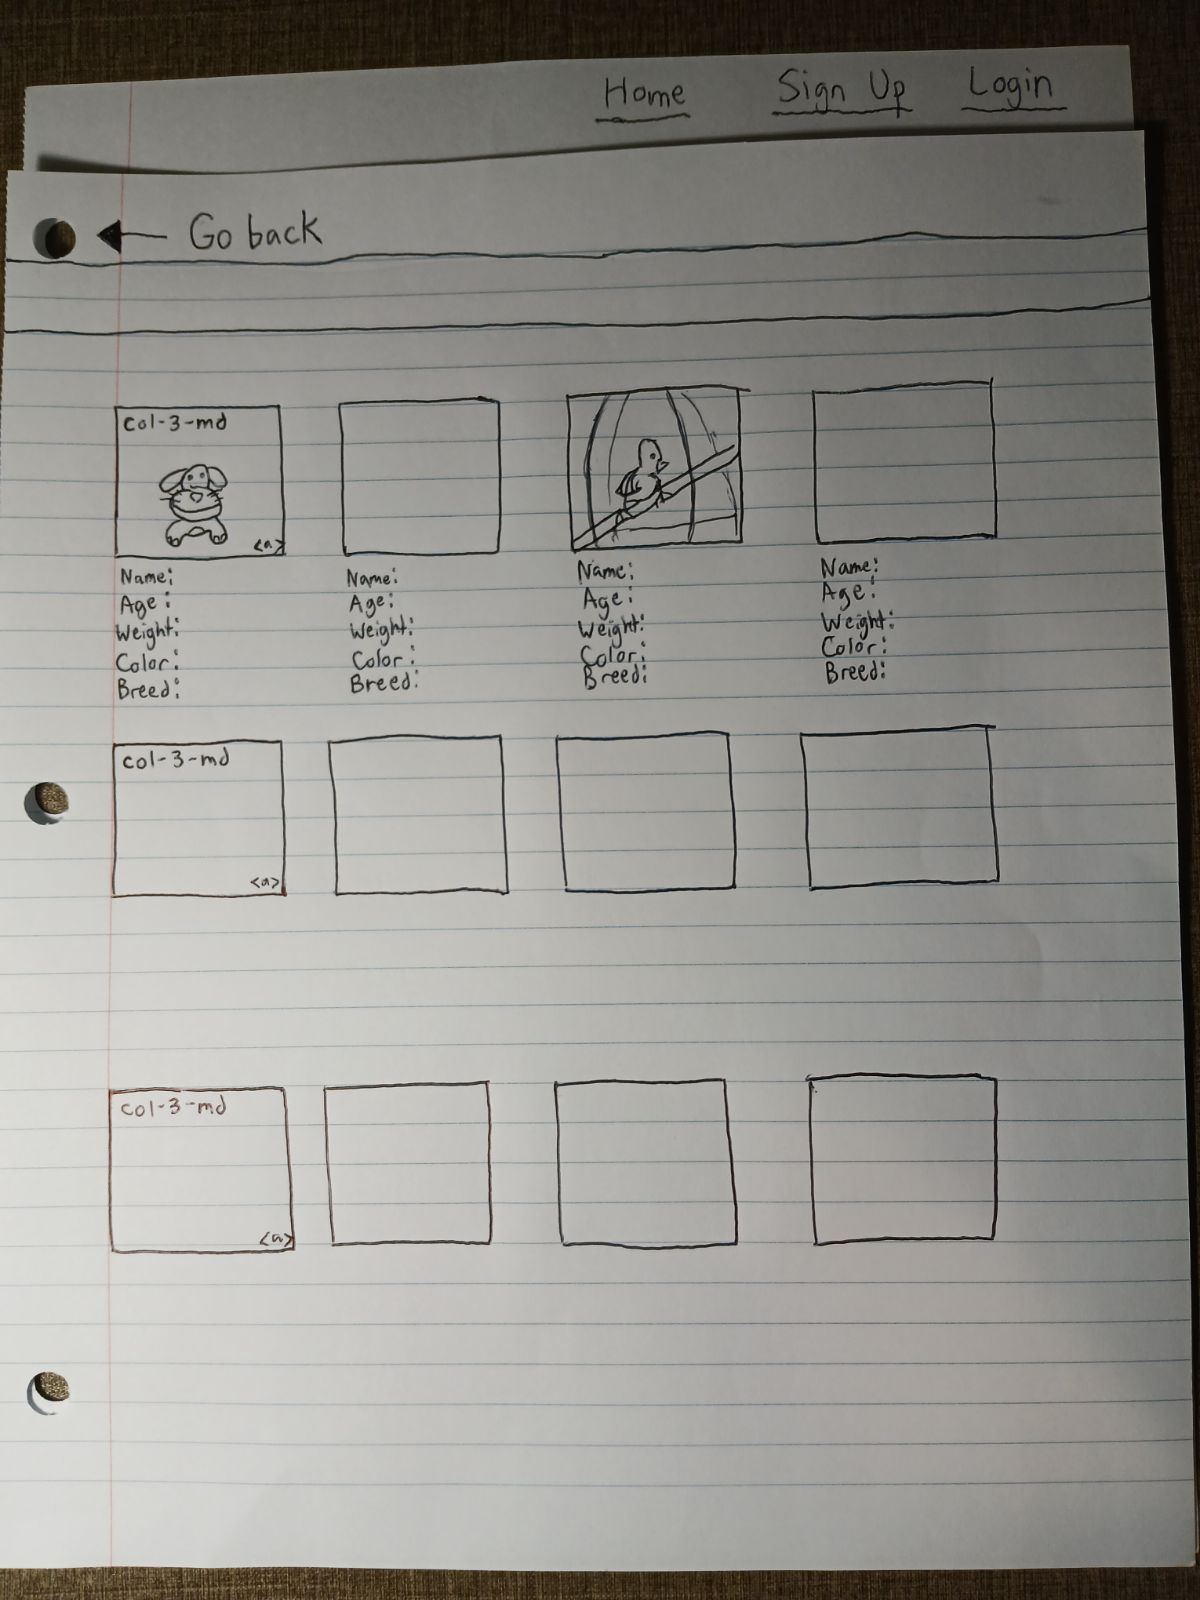 Home Sign Up Login
Go back
col-3-md
<a>
Name:
Age:
Weight:
Color:
Breed:
Name:
Age:
Weight:
Color:
Breed:
Name:
Age:
Weight:
Color:
Breed:
Name:
Age:
Weight:
Color:
Breed:
col-3-md
<a>
col-3-md
<a>